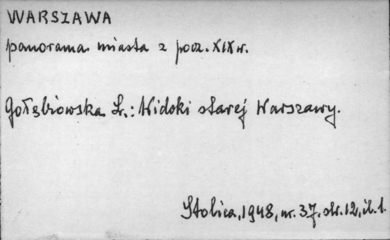 WARSZAWA
panorama miasta z pocz. XIX w.
Gołębiowska Ł.: Widoki starej Warszawy.
Stolica, 1948, nr. 37. str. 12, il. 1.